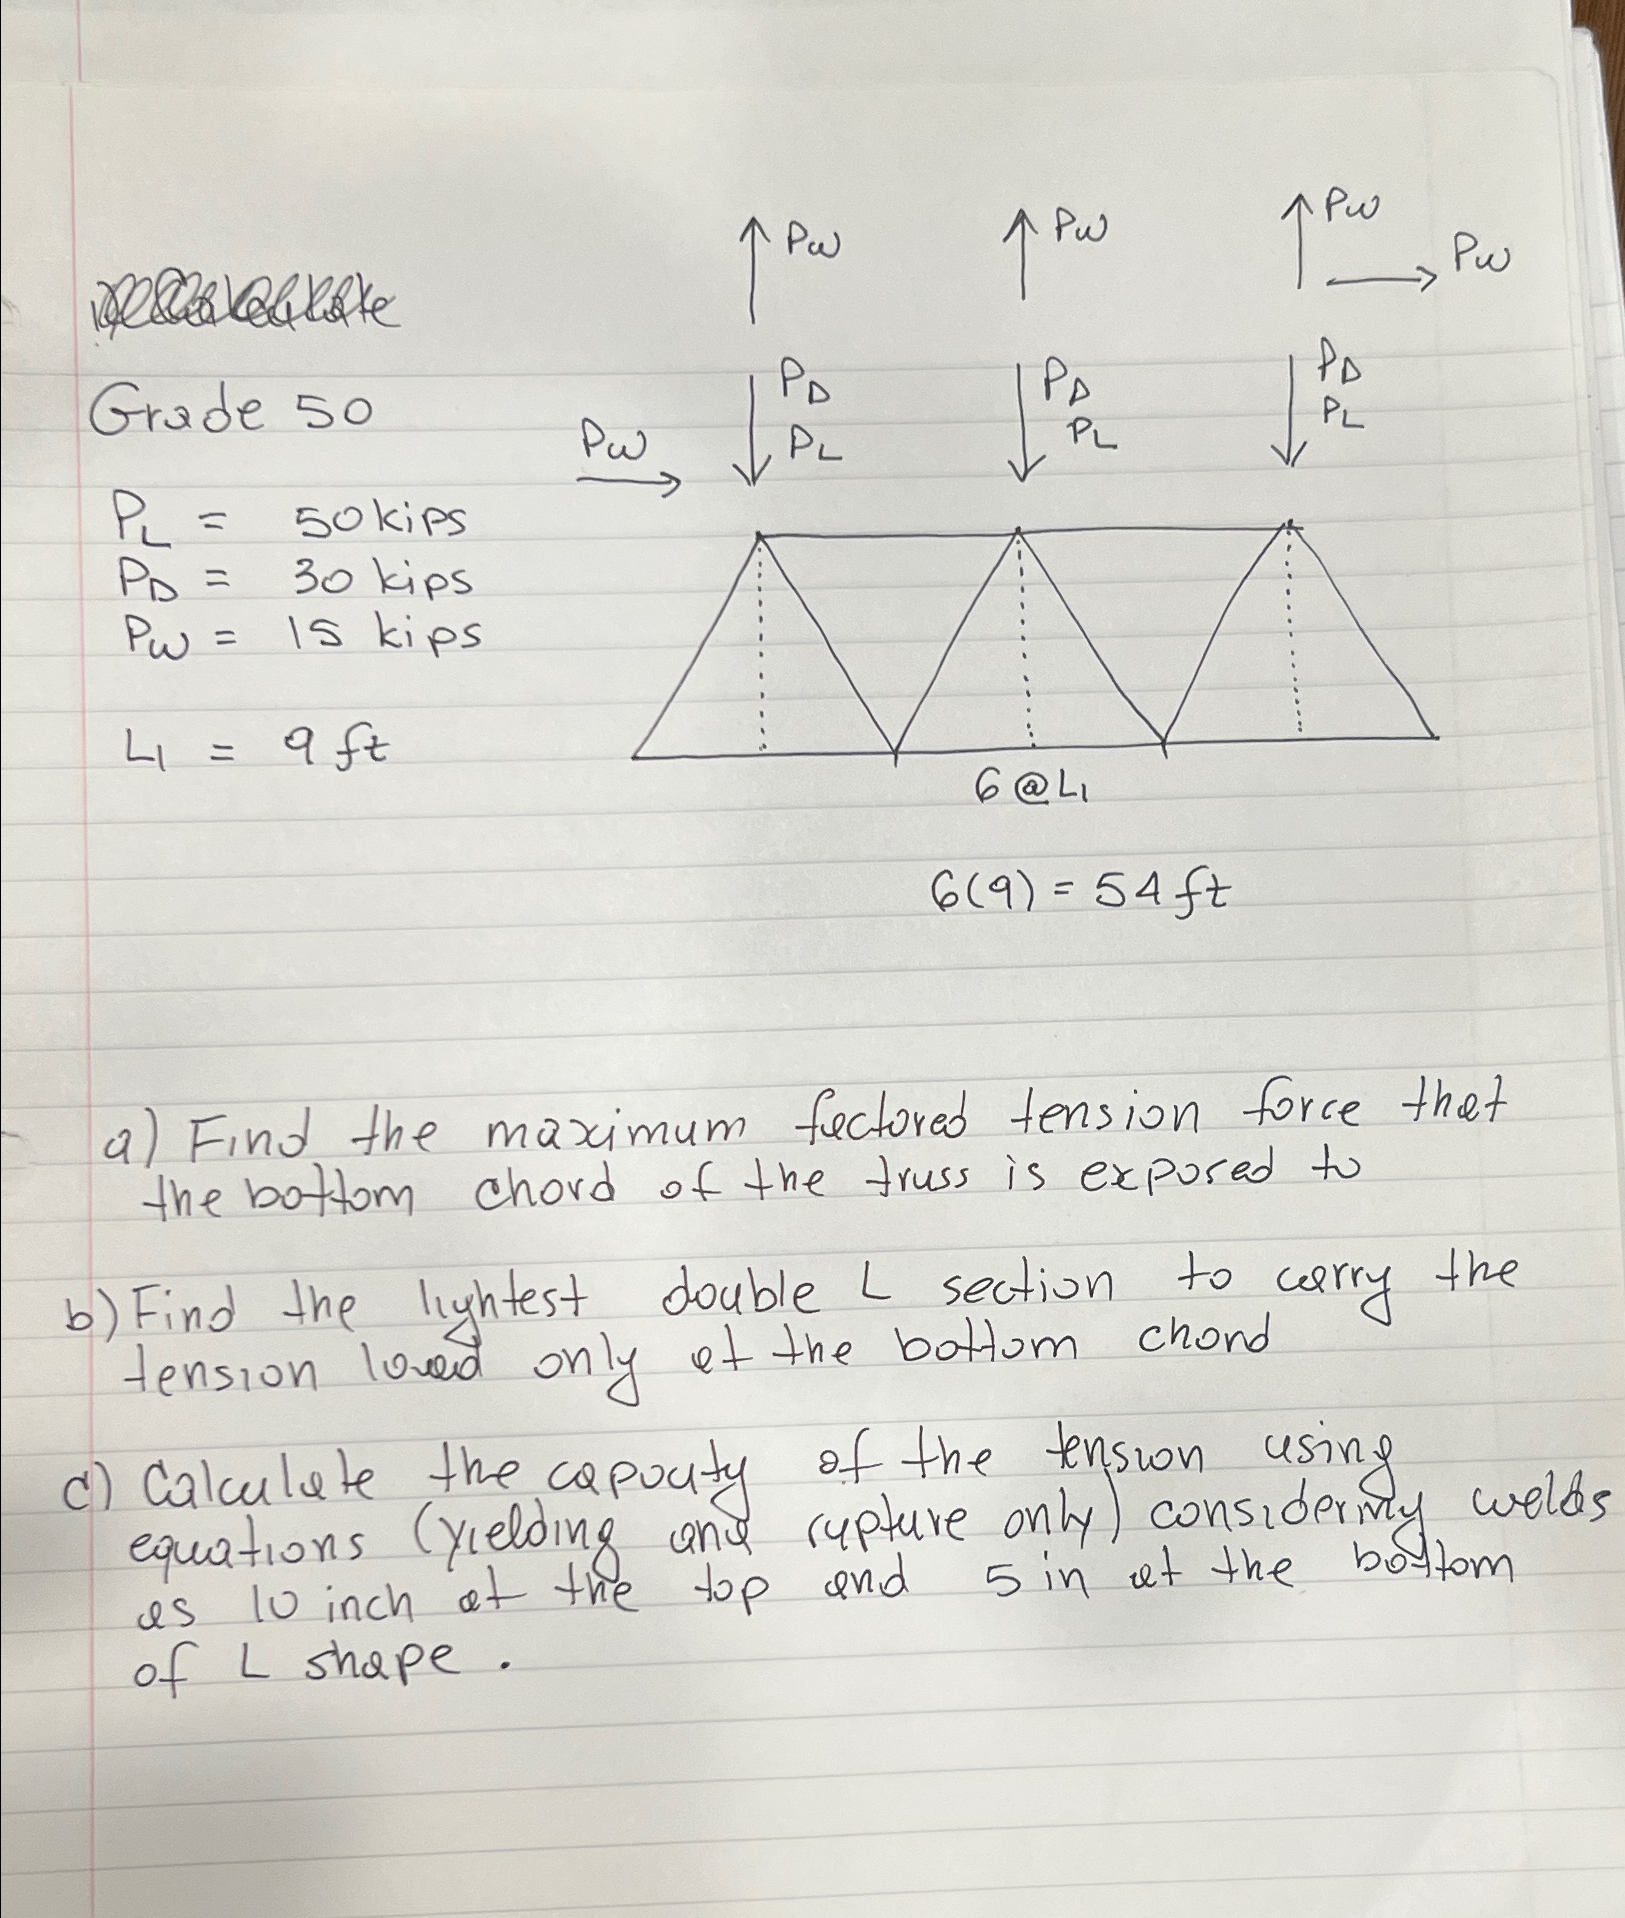 Pw
Pw
Pw
Pw
Grade 50
Pw
PD
PL
PD
PL
PD
PL
PL = 50 kips
PD = 30 kips
Pw = 15 kips
L1 = 9 ft
6 @ L1
6(9) = 54 ft
a) Find the maximum factored tension force that
the bottom chord of the truss is exposed to
b) Find the lightest double L section to carry the
tension load only at the bottom chord
c) Calculate the capacity of the tension using
equations (yielding and rupture only) considering welds
as 10 inch at the top and 5 in at the bottom
of L shape.